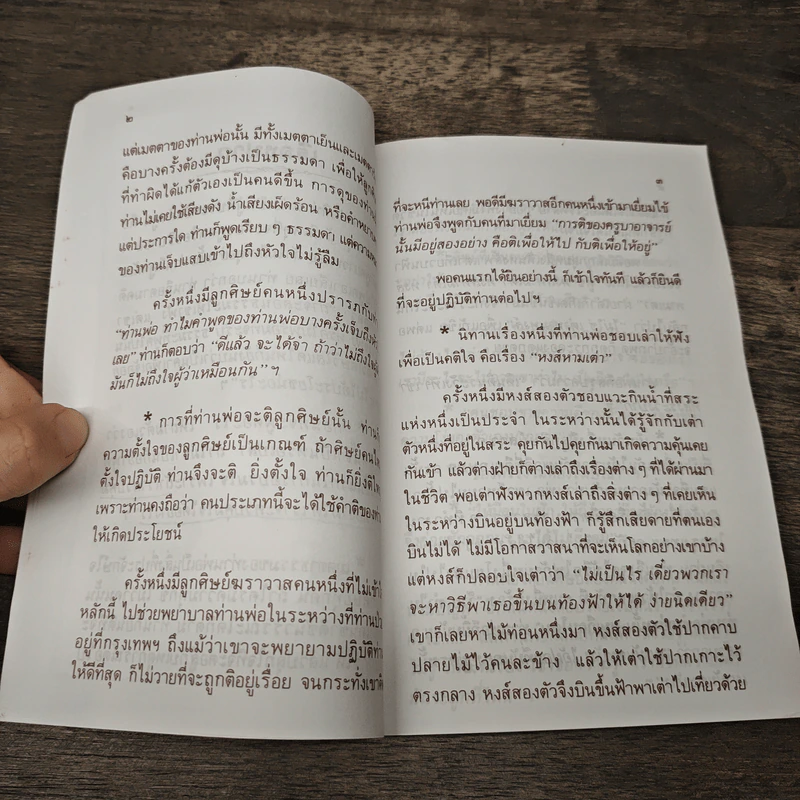 ๒
แต่เมตตาของท่านพ่อนั้น มีทั้งเมตตาเย็นและเมตตา
คือบางครั้งต้องมีดุบ้างเป็นธรรมดา เพื่อให้
ที่ทำผิดได้แก้ตัวเองเป็นคนดีขึ้น การดุของท่าน
ท่านไม่เคยใช้เสียงดัง น้ำเสียงเผ็ดร้อน หรือคำหยาบ
แต่ประการใด ท่านก็พูดเรียบ ๆ ธรรมดา แต่
ของท่านเจ็บแสบเข้าไปถึงหัวใจไม่รู้ลืม
ครั้งหนึ่งมีลูกศิษย์คนหนึ่งปรารภกับ
“ท่านพ่อ ทำไมคำพูดของท่านพ่อบางครั้งเจ็บถึง
เลย” ท่านก็ตอบว่า “ดีแล้ว จะได้จำ ถ้าว่าไม่ถึงใจ
มันก็ไม่ถึงใจผู้ว่าเหมือนกัน” ฯ
* การที่ท่านพ่อจะติลูกศิษย์นั้น
ความตั้งใจของลูกศิษย์เป็นเกณฑ์ ถ้าศิษย์คน
ตั้งใจปฏิบัติ ท่านจึงจะติ ยิ่งตั้งใจ ท่านก็ยิ่งติ
เพราะท่านคงถือว่า คนประเภทนี้จะได้ใช้คำติของ
ให้เกิดประโยชน์
ครั้งหนึ่งมีลูกศิษย์ฆราวาสคนหนึ่งที่ไม่เข้า
หลักนี้ ไปช่วยพยาบาลท่านพ่อในระหว่างที่ท่าน
อยู่ที่กรุงเทพฯ ถึงแม้ว่าเขาจะพยายามปฏิบัติ
ให้ดีที่สุด ก็ไม่วายที่จะถูกติอยู่เรื่อย จนกระทั่งเขา
๓
ที่จะหนีท่านเลย พอดีมีฆราวาสอีกคนหนึ่งเข้ามาเยี่ยมไข้
ท่านพ่อจึงพูดกับคนที่มาเยี่ยม “การติของครูบาอาจารย์
นั้นมีอยู่สองอย่าง คือติเพื่อให้ไป กับติเพื่อให้อยู่”
พอคนแรกได้ยินอย่างนี้ ก็เข้าใจทันที แล้วก็ยินดี
ที่จะอยู่ปฏิบัติท่านต่อไปฯ
* นิทานเรื่องหนึ่งที่ท่านพ่อชอบเล่าให้ฟัง
เพื่อเป็นคติใจ คือเรื่อง “หงส์หามเต่า”
ครั้งหนึ่งมีหงส์สองตัวชอบแวะกินน้ำที่สระ
แห่งหนึ่งเป็นประจำ ในระหว่างนั้นได้รู้จักกับเต่า
ตัวหนึ่งที่อยู่ในสระ คุยกันไปคุยกันมาเกิดความคุ้นเคย
กันเข้า แล้วต่างฝ่ายก็ต่างเล่าถึงเรื่องต่าง ๆ ที่ได้ผ่านมา
ในชีวิต พอเต่าฟังพวกหงส์เล่าถึงสิ่งต่าง ๆ ที่เคยเห็น
ในระหว่างบินอยู่บนท้องฟ้า ก็รู้สึกเสียดายที่ตนเอง
บินไม่ได้ ไม่มีโอกาสวาสนาที่จะเห็นโลกอย่างเขาบ้าง
แต่หงส์ก็ปลอบใจเต่าว่า “ไม่เป็นไร เดี๋ยวพวกเรา
จะหาวิธีพาเธอขึ้นบนท้องฟ้าให้ได้ ง่ายนิดเดียว”
เขาก็เลยหาไม้ท่อนหนึ่งมา หงส์สองตัวใช้ปากคาบ
ปลายไม้ไว้คนละข้าง แล้วให้เต่าใช้ปากเกาะไว้
ตรงกลาง หงส์สองตัวจึงบินขึ้นฟ้าพาเต่าไปเที่ยวด้วย